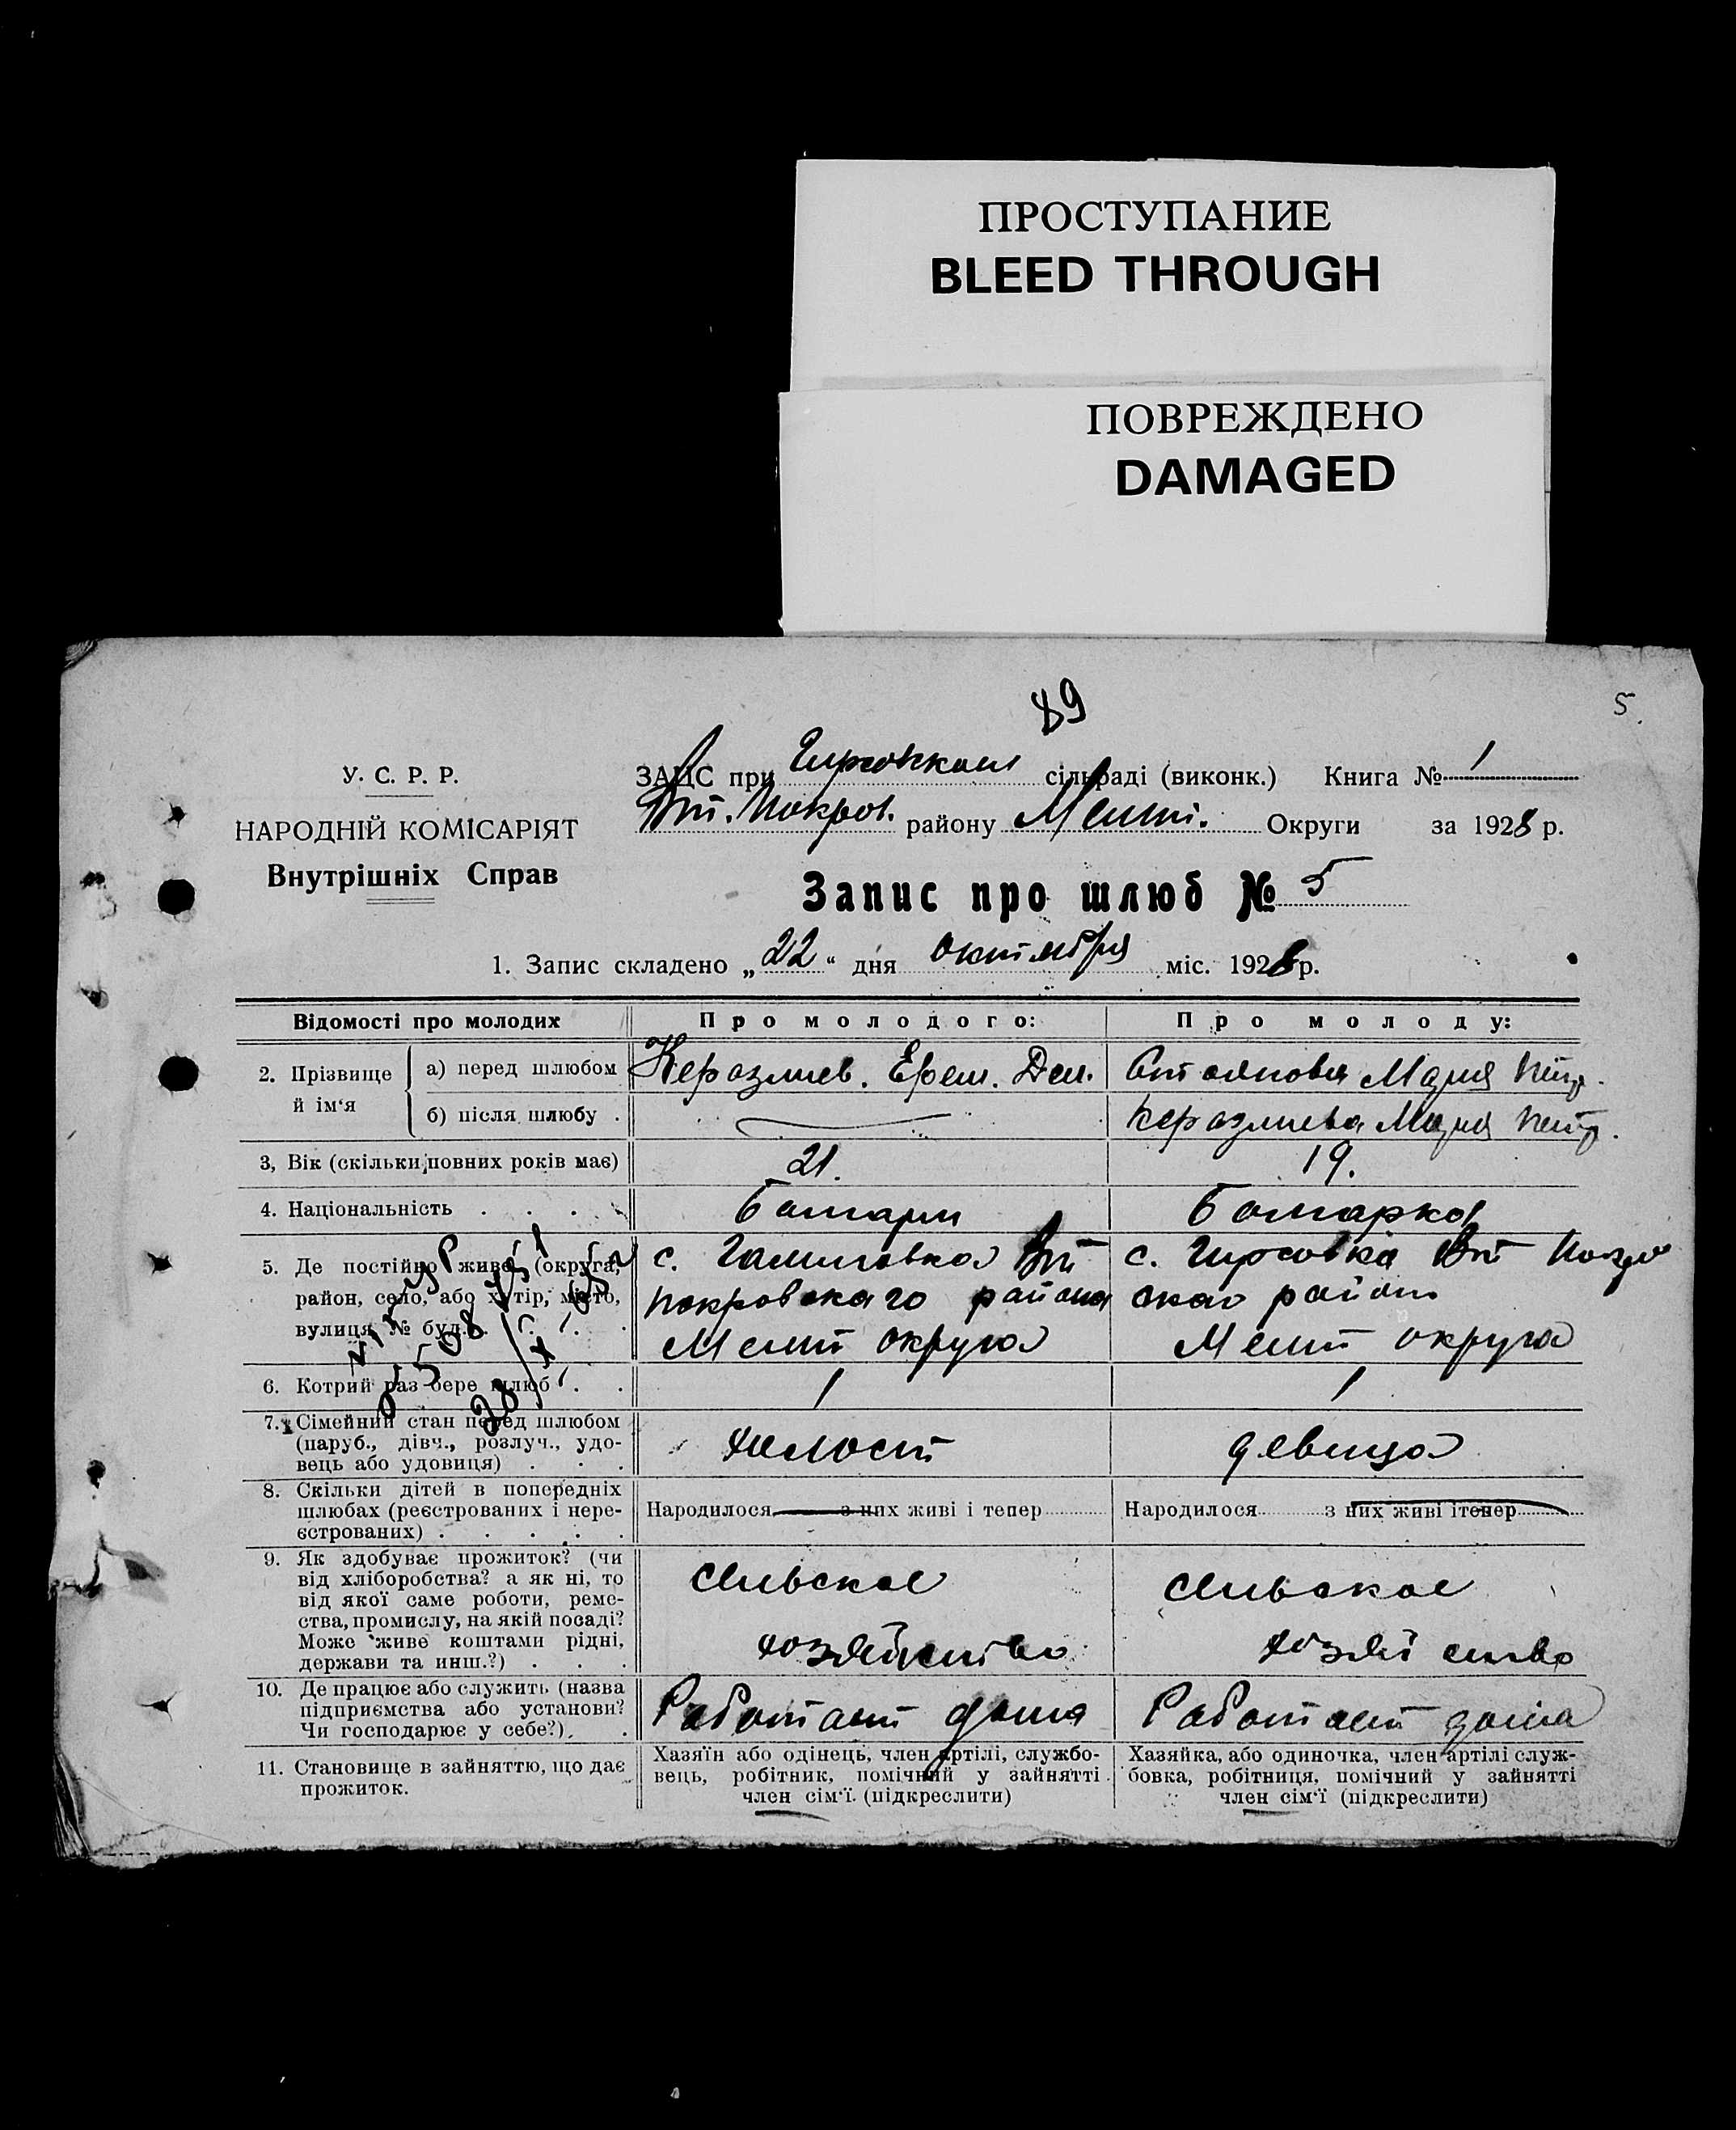 ПРОСТУПАНИЕ
BLEED THROUGH
ПОВРЕЖДЕНО
DAMAGED
89
5.
У. С. Р. Р.
НАРОДНІЙ КОМІСАРІЯТ
Внутрішніх Справ
ЗАЦС при Гирсовском сільраді (виконк.) Книга № 1
Вт. Покров. району Мелит. Округи за 1928 р.
Запис про шлюб № 5
1. Запис складено „22“ дня октября міс. 1928 р.
Відомості про молодих
Про молодого:
Про молоду:
2. Прізвище й ім‘я
а) перед шлюбом
Стоянова Мария Петр.
б) після шлюбу .
Мария Петр.
3, Вік (скільки повних років має)
21.
19.
4. Національність . . . .
Болгарин
Болгарка
5. Де постійно живе (округа,
район, село, або хутір, місто,
вулиця № буд.. . . .
с. Вт
покровскаго района
Мелит округа
с. Гирсовка Вт Покро
скаго район
Мелит округа
28/X-
6. Котрий раз бере шлюб . .
1
1
7. Сімейний стан перед шлюбом
(паруб., дівч., розлуч., удо-
вець або удовиця) . . .
холост
девица
8. Скільки дітей в попередніх
шлюбах (реєстрованих і нере-
єстрованих) . . . . .
Народилося з них живі і тепер
Народилося з них живі ітепер
9. Як здобуває прожиток? (чи
від хліборобства? а як ні, то
від якої саме роботи, реме-
ства, промислу, на якій посаді?
Може живе коштами рідні,
держави та инш.?) . . .
сельское
хозяйство
сельское
хозяйство
10. Де працює або служить (назва
підприємства або установи?
Чи господарює у себе?). .
Работает дома
Работает дома
11. Становище в зайняттю, що дає
прожиток.
Хазяїн або одінець, член артілі, службо-
вець, робітник, помічний у зайнятті
член сім‘ї. (підкреслити)
Хазяйка, або одиночка, член артілі служ-
бовка, робітниця, помічний у зайнятті
член сім‘ї (підкреслити)